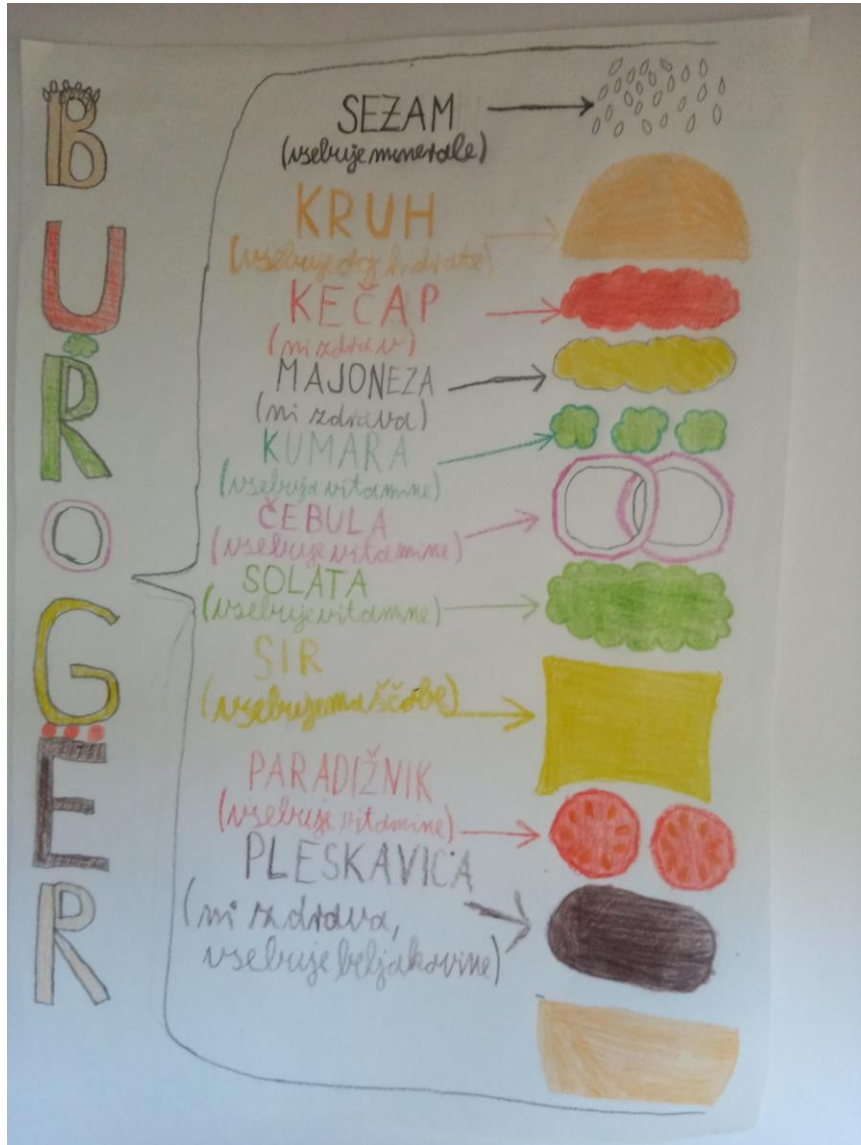 BUR
O
GER
SEZAM
(vsebuje minerale)
KRUH
(vsebuje ogj. hidrate)
KEČAP
(ni zdrav)
MAJONEZA
(ni zdrava)
KUMARA
(vsebuje vitamine)
ČEBULA
(vsebuje vitamine)
SOLATA
(vsebuje vitamine)
SIR
(vsebuje maščobe)
PARADIŽNIK
(vsebuje vitamine)
PLESKAVICA
(ni zdrava,
vsebuje beljakovine)